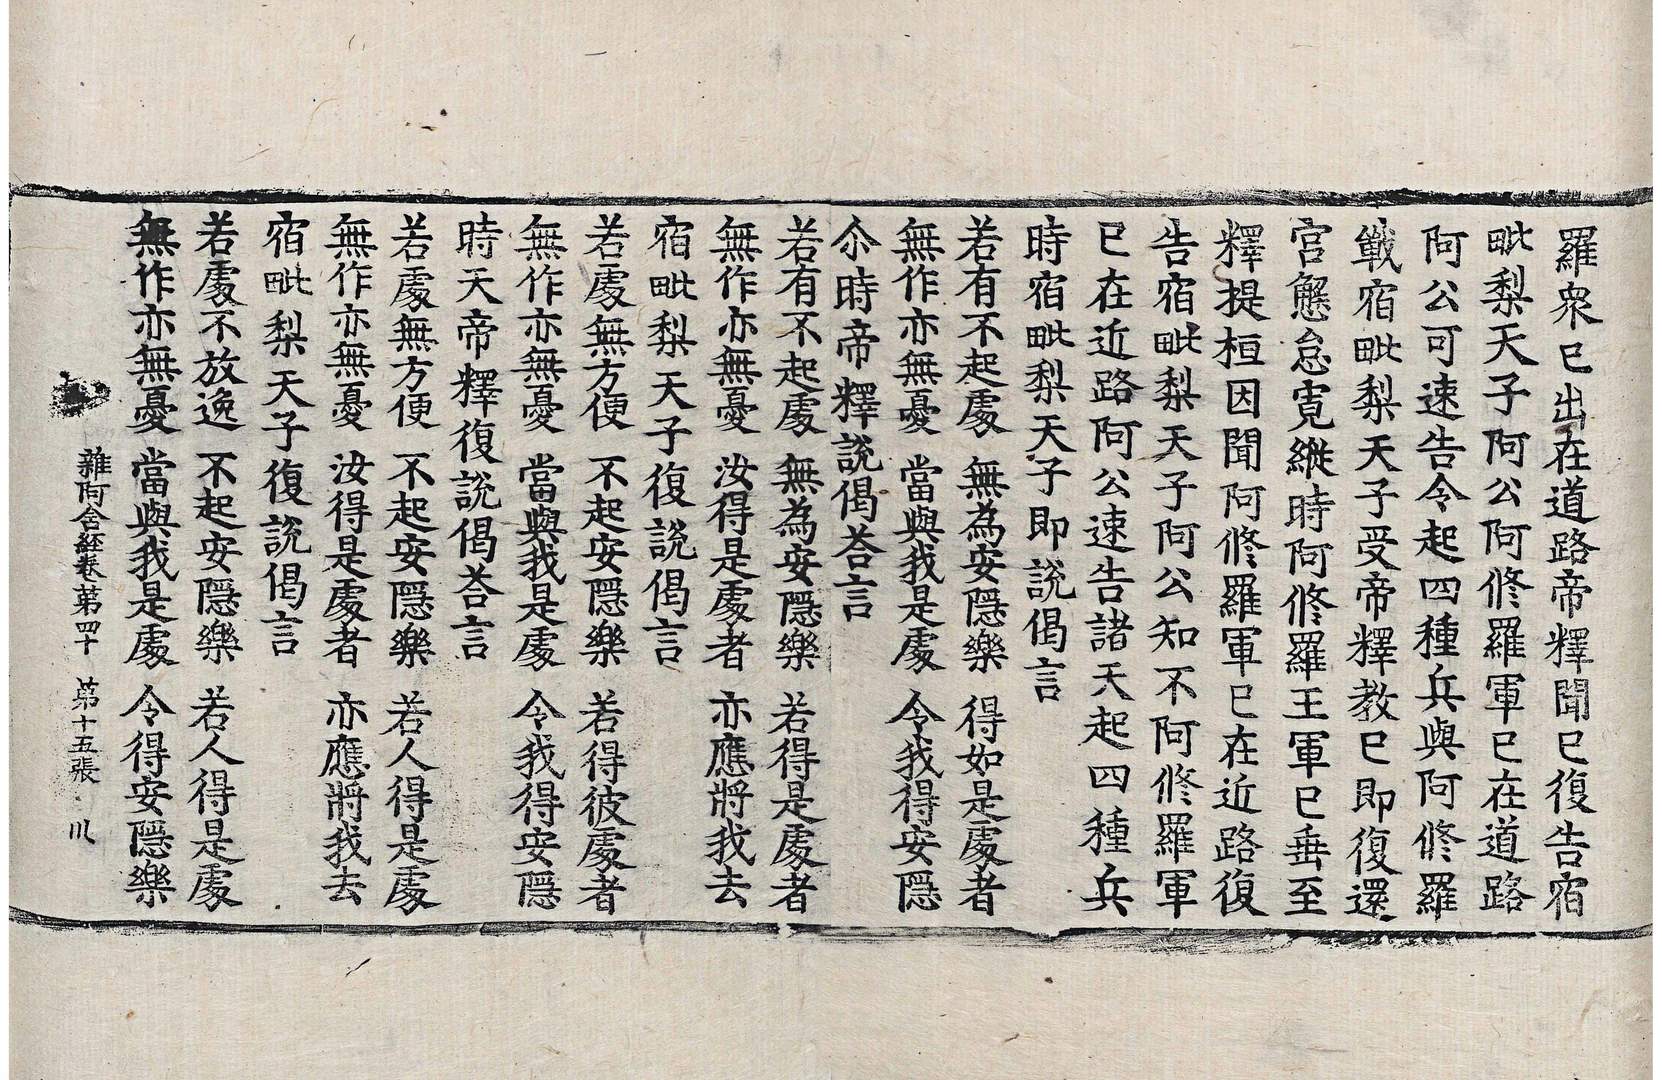 羅衆已出在道路帝釋聞已復告宿
毗梨天子阿公阿修羅軍已在道路
阿公可速告令起四種兵與阿修羅
戰宿毗梨天子受帝釋教已即復還
宫懈怠寬縱時阿修羅王軍已垂至
釋提桓因聞阿修羅軍已在近路復
告宿毗梨天子阿公知不阿修羅軍
已在近路阿公速告諸天起四種兵
時宿毗梨天子即說偈言
若有不起處　無為安隱樂　得如是處者
無作亦無憂　當與我是處　令我得安隱
尒時帝釋說偈荅言
若有不起處　無為安隱樂　若得是處者
無作亦無憂　汝得是處者　亦應將我去
宿毗梨天子復說偈言
若處無方便　不起安隱樂　若得彼處者
無作亦無憂　當與我是處　令我得安隱
時天帝釋復說偈荅言
若處無方便　不起安隱樂　若人得是處
無作亦無憂　汝得是處者　亦應將我去
宿毗梨天子復說偈言
若處不放逸　不起安隱樂　若人得是處
無作亦無憂　當與我是處　令得安隱樂
雜阿含経卷第四十　第十五張　川